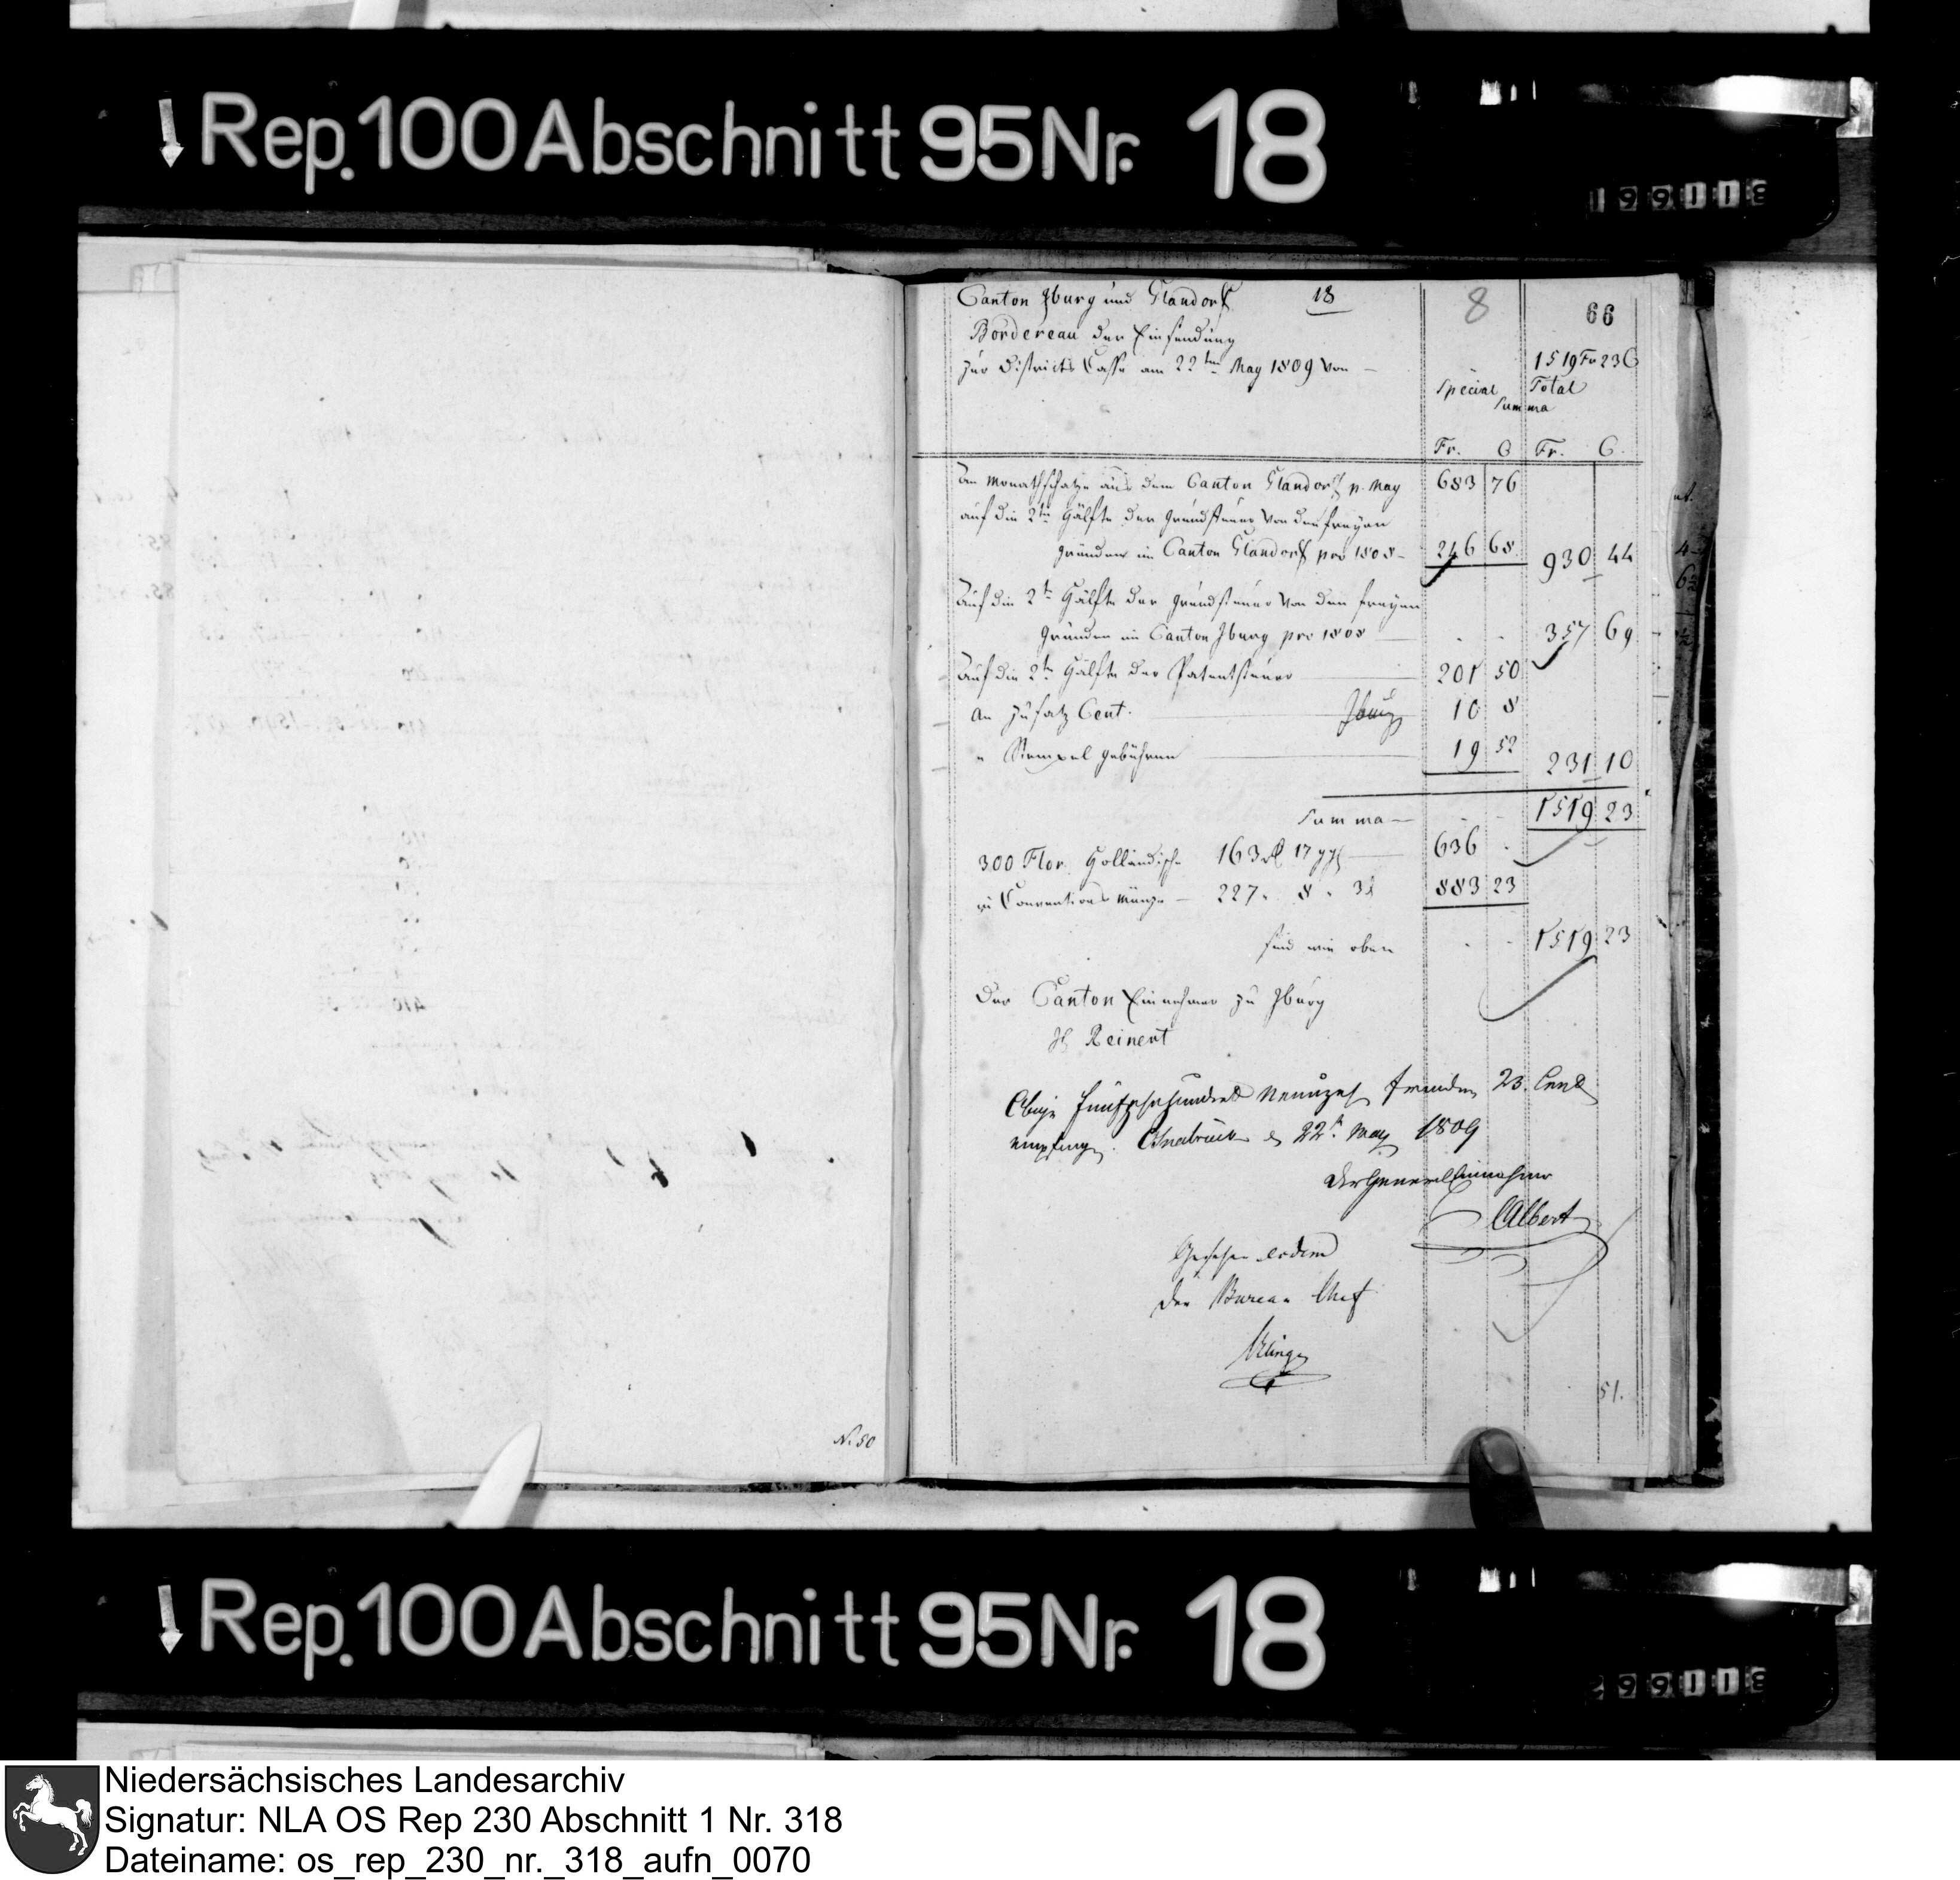 Rep. 100 Abschnitt 95 Nr. 18
199118
Canton Iburg und Glandorf 18 8 66
Bordereau der Einsendung
zur Districts Casse am 22ten May 1809 von — 1519 Fr 23 C
Special Total
Summa
Fr. C Fr. C.
An Monathschatze aus dem Canton Glandorf p. May 683 76
auf die 2te Hälfte der Grundsteuer von den freyen
Gründen im Canton Glandorf pro 1808 — 246 68. 930 44
Auf die 2te Hälfte der Grundsteuer von den freyen
Gründen im Canton Iburg pro 1808 — - - 357 69
Auf die 2te Hälfte der Patentsteuer — 201 50
An Zusatz Cent. — Iburg 10 8
" Stempel gebühren — 19 52 231 10
Summa — - - 1519 23
300 Flor. Holländische 163 rl 17 ggl — 636 -
in Conventions Münze — 227 " 8 " 3 d 883 23
sind wie oben - - 1519 23
Der Canton Einnehmer zu Iburg
Reinert
Obige Fünfzehnhundert Neunzehn Franken 23. Cent
empfangen. Osnabrück d 22t. May 1809
Der General Einnehmer
Albert
Gesehen eodem
Der Bureau Chef
51.
No 50
Rep. 100 Abschnitt 95 Nr. 18
Niedersächsisches Landesarchiv
Signatur: NLA OS Rep 230 Abschnitt 1 Nr. 318
Dateiname: os_rep_230_nr._318_aufn_0070